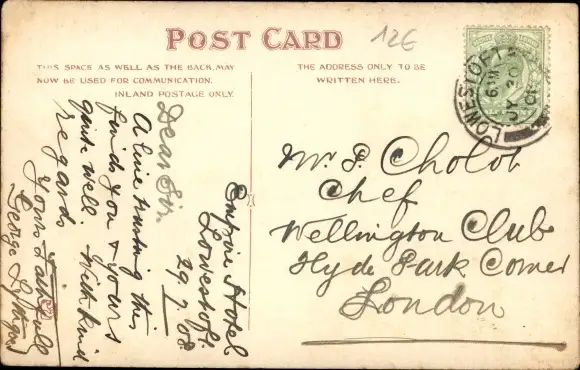 POST CARD
12€
THIS SPACE AS WELL AS THE BACK, MAY
NOW BE USED FOR COMMUNICATION.
INLAND POSTAGE ONLY.
THE ADDRESS ONLY TO BE
WRITTEN HERE.
LOWESTOFT
JY 20
Empire Hotel
Lowestoft.
29.7.08
Dear Sir,
A line trusting this
finds you & yours
quite well. With kind
regards
Yours
George
Mr. P. Cholot
Chef
Wellington Club
Hyde Park Corner
London